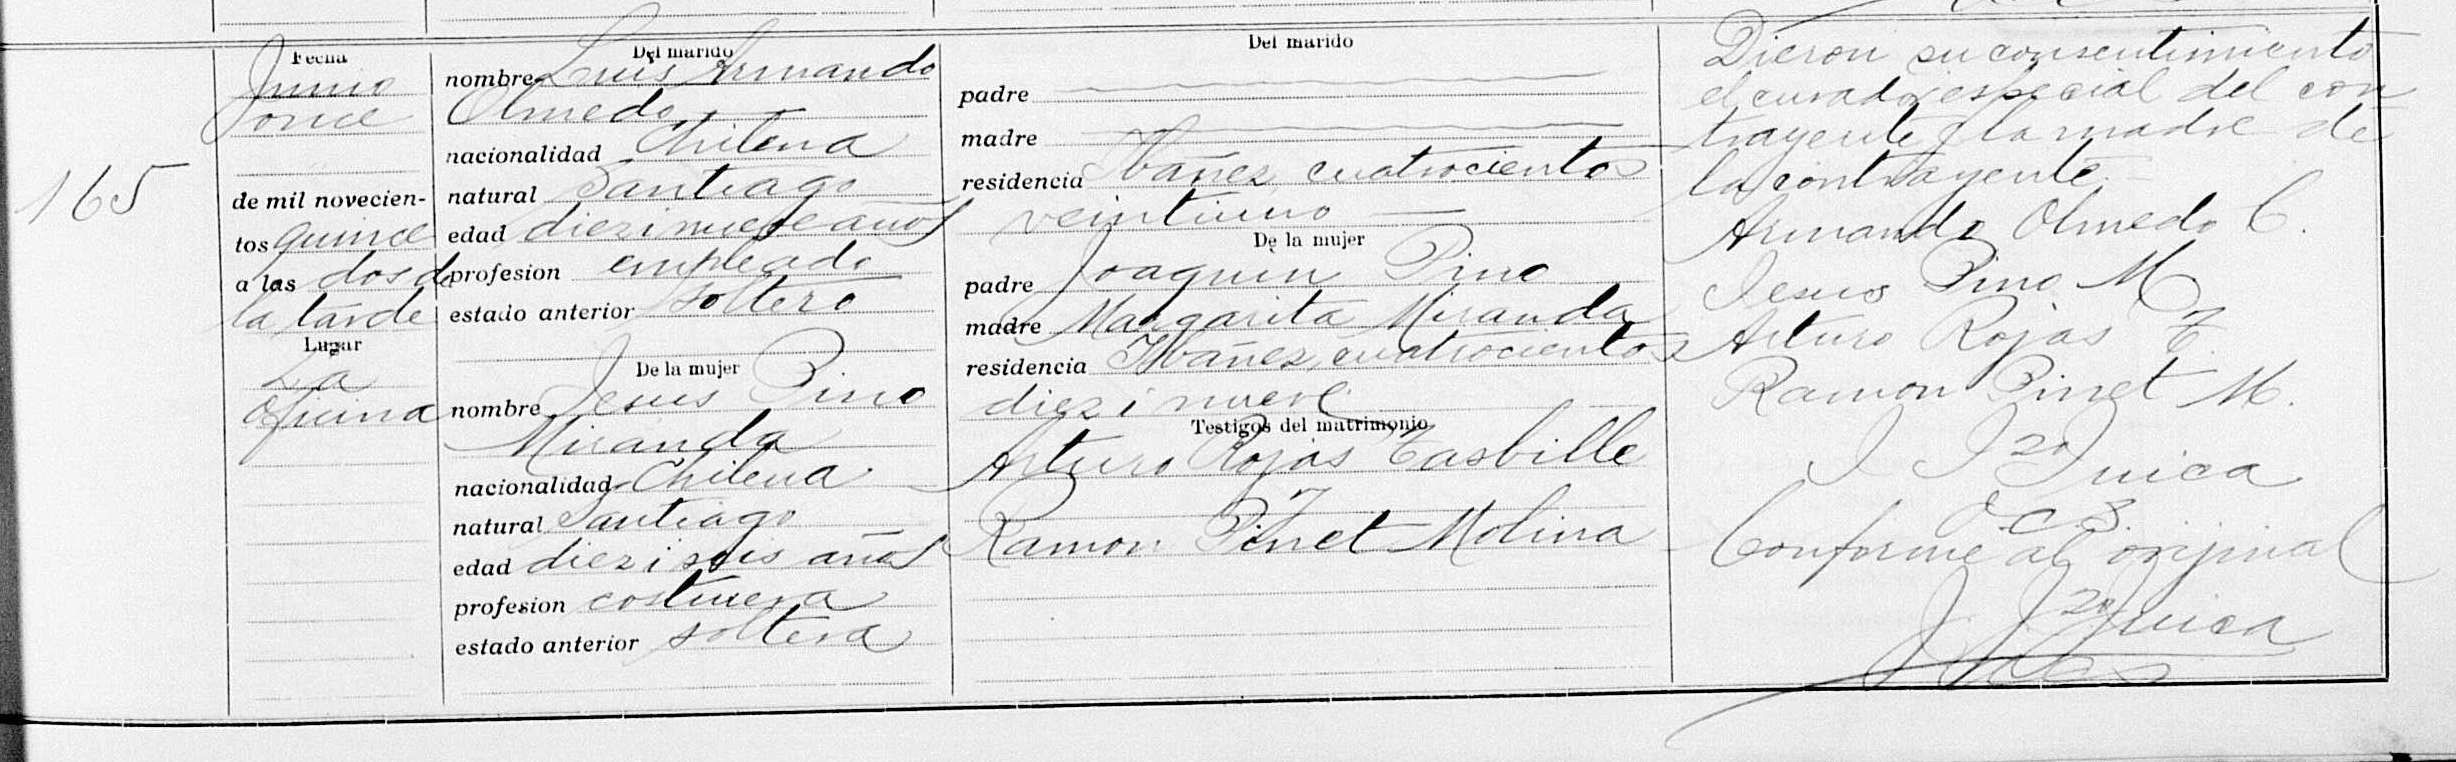 165
Fecha
Junio
once
de mil novecien-
tos quince
a las dos de
la tarde
Lugar
La
Oficina
Del marido
nombre Luis Armando
Olmedo
nacionalidad Chilena
natural Santiago
edad diezinueve años
profesion empleado
estado anterior soltero
De la mujer
nombre Jesus Pino
Miranda
nacionalidad Chilena
natural Santiago
edad diezi seis años
profesion costurera
estado anterior soltera
Del marido
padre
madre
residencia Ibañez cuatrocientos
veintiuno
De la mujer
padre Joaquin Pino
madre Margarita Miranda
residencia Ibañez, cuatrocientos
diezinueve
Testigos del matrimonio
Arturo Rojas
Ramon Pinet Molina
Dieron su consentimiento
el curador especial del con
trayente y la madre de
la contrayente
Armando Olmedo C.
Jesus Pino M
Arturo Rojas T.
Ramon Pinet M.
O. C. S.
Conforme al orijinal